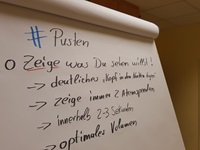 # Pusten
O Zeige was Du sehen willst!
→ deutliches "Kopf in den Nacken legen"
→ zeige immer 2 Atemspenden
→ innerhalb 2-3 Sekunden
→ optimales Volumen